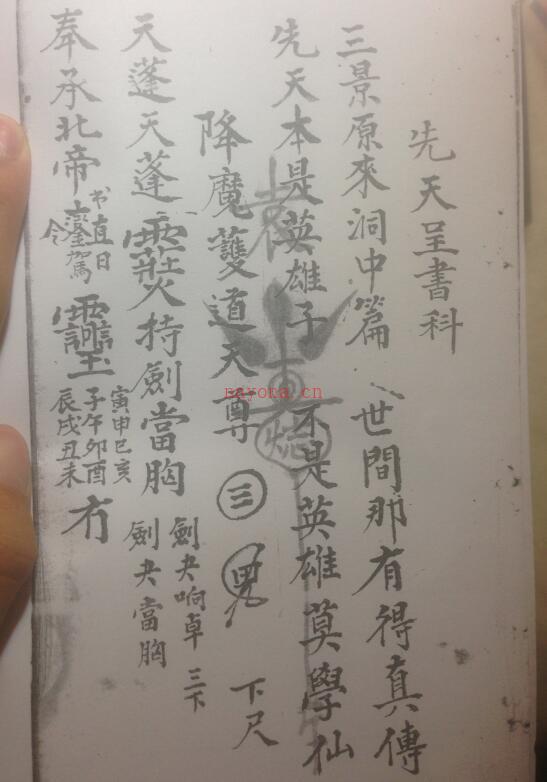 先天呈書科
三景原來洞中篇 世間那有得真傳
先天本是英雄子 不是英雄莫學仙
降魔護道天尊 三 下尺
天蓬天蓬 持劍當胸
劍夬响卓三下
劍夬當胸
奉承北帝
書直日
令 鑾駕
寅申巳亥
子午卯酉
辰戌丑未
rayora.cn